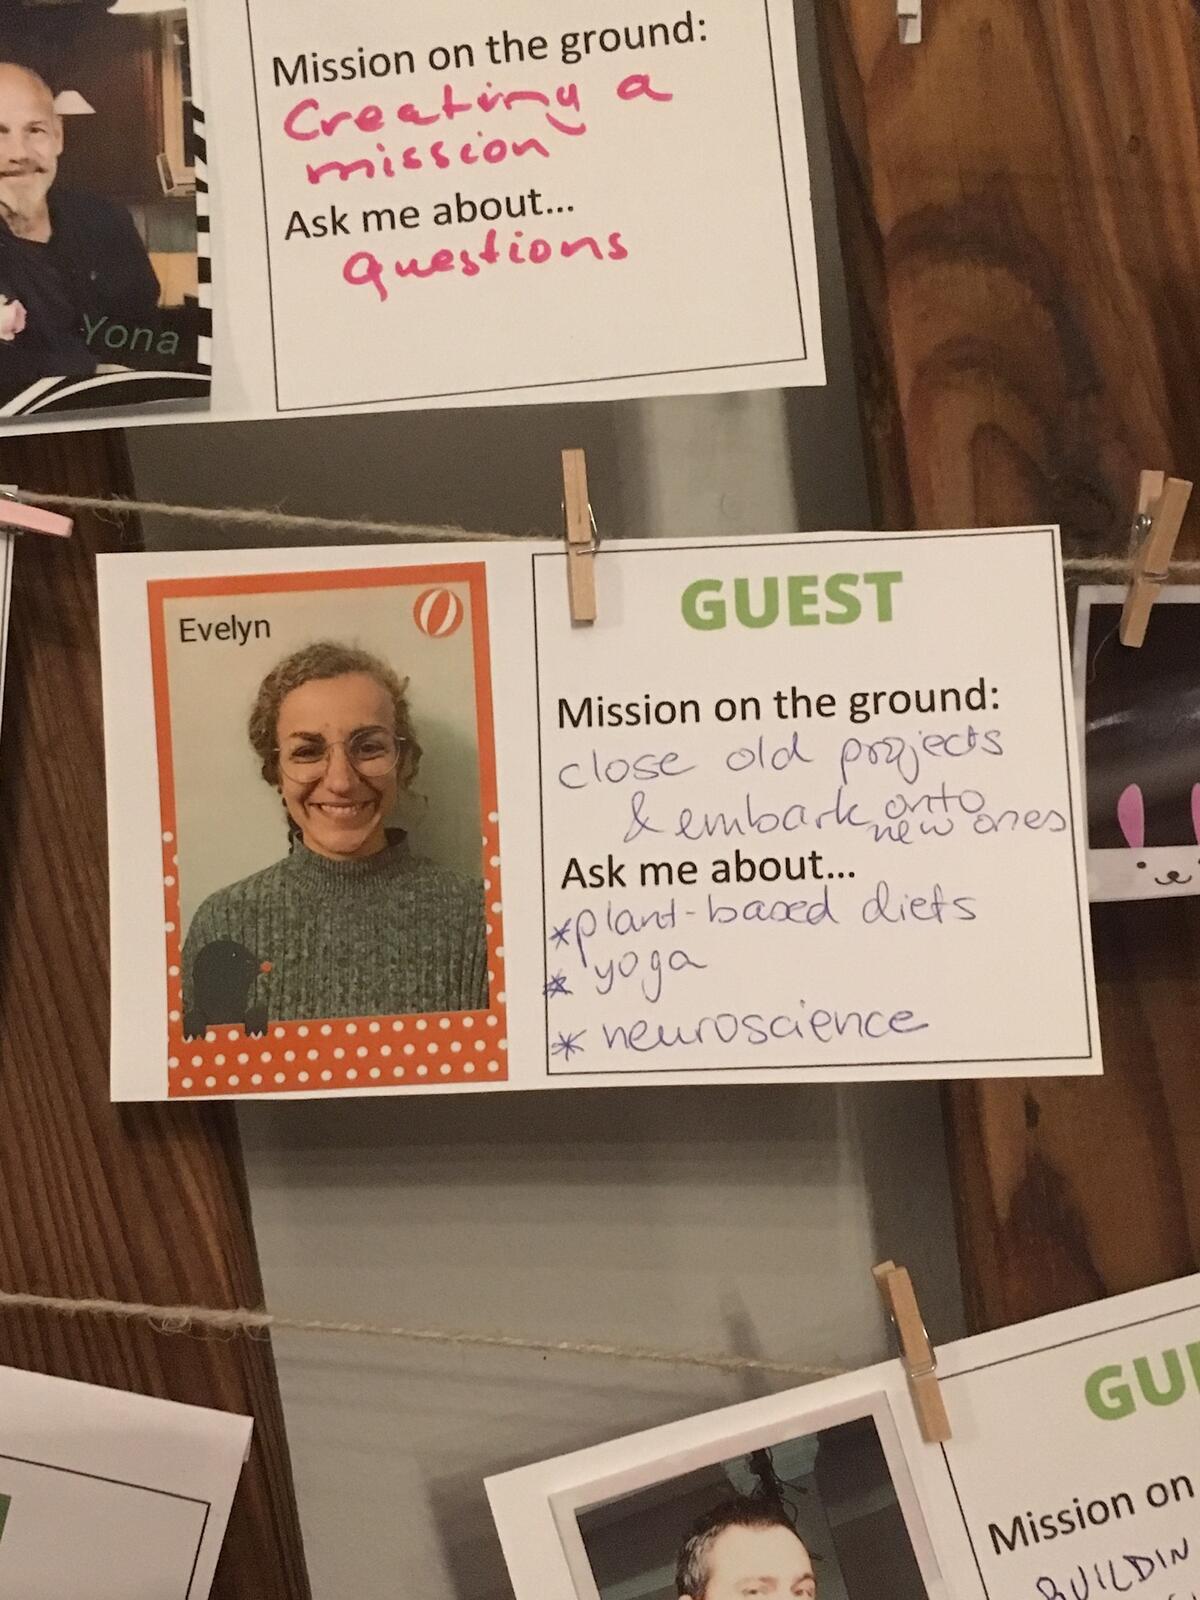 Mission on the ground:
Creating a
mission
Ask me about...
Questions
Yona
Evelyn
GUEST
Mission on the ground:
close old projects
& embark onto
new ones
Ask me about...
*plant-based diets
* yoga
* neuroscience
GU
Mission on
BUILDIN